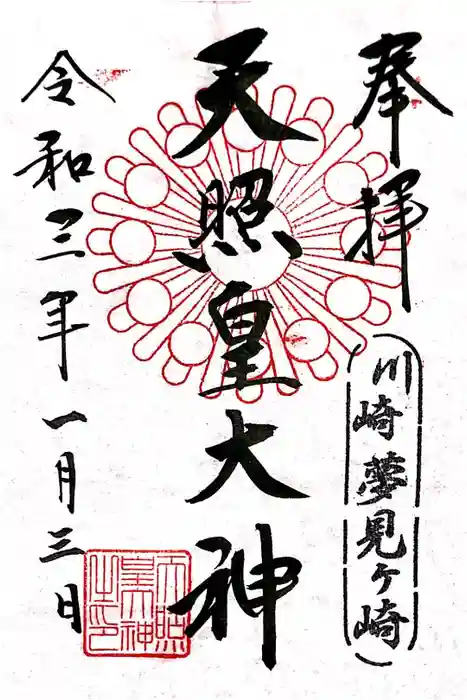 奉拝
(川崎夢見ヶ崎)
天照皇大神
令和三年一月三日
天照
皇大神
之印